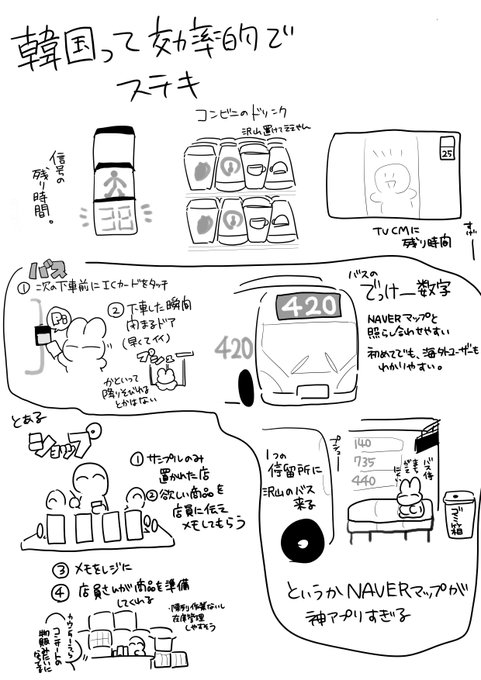 韓国って効率的で
ステキ
信号の
残り時間。
38
コンビニのドリンク
沢山置けてええやん
25
TVCMに
残り時間
すげー
バス
① 次の下車前にICカードをタッチ
ピッ
② 下車した瞬間
閉まるドア
(早くてイイ)
プシュー
かといって
降りそびれる
とかはない
420
420
バスの
でっけー数字
NAVERマップと
照らし合わせやすい
初めてでも、海外ユーザーも
わかりやすい。
とある
ショップ
① サンプルのみ
置かれた店
② 欲しい商品を
店員に伝え
メモしてもらう
③ メモをレジに
④ 店員さんが商品を準備
してくれる
・陳列作業ないし
在庫管理
しやすそう
カウンターうら
コンサートの
物販みたいに
なってる
1つの
停留所に
沢山のバス
来る
プシュー
140
735
440
バス停
ゴミ箱
というかNAVERマップが
神アプリすぎる